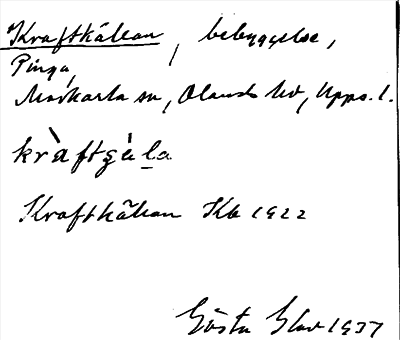 Kraftkällan, bebyggelse,
Pinga,
Morkarla sn, Olands hd, Upps. l.
kràftςäla
Kraftkällan Kb 1922
Gösta Elov 1937